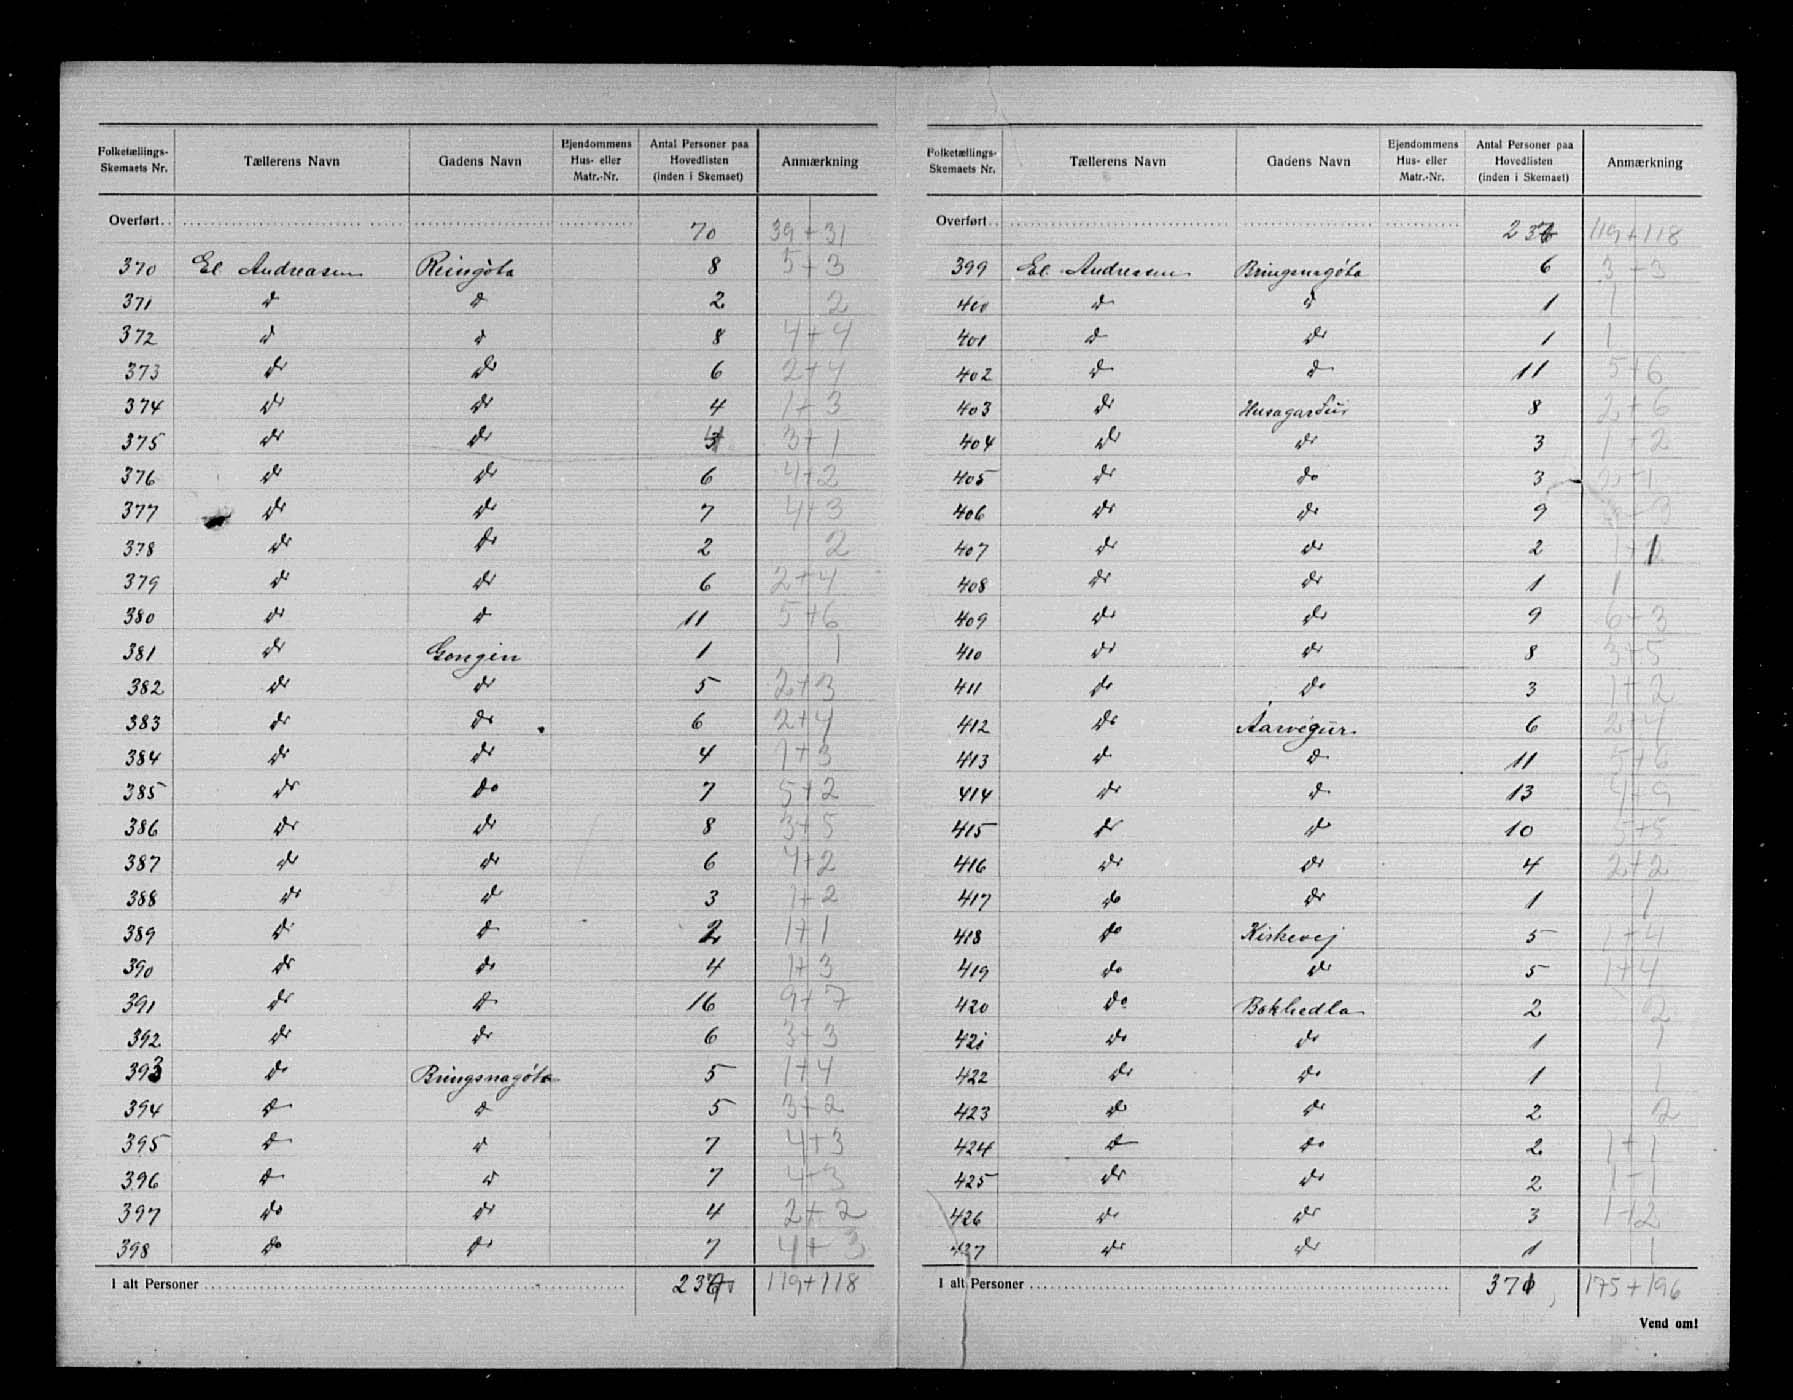 Folketællings-Skemaets Nr. | Tællerens Navn | Gadens Navn | Ejendommens Hus- eller Matr.-Nr. | Antal Personer paa Hovedlisten (inden i Skemaet) | Anmærkning
Overført 70 39+31
370 El Andreasen Reingöta 8 5+3
371 do do 2 2
372 do do 8 4+4
373 do do 6 2+4
374 do do 4 1+3
375 do do 4 3+1
376 do do 6 4+2
377 do do 7 4+3
378 do do 2 2
379 do do 6 2+4
380 do do 11 5+6
381 do Gongin 1 1
382 do do 5 2+3
383 do do 6 2+4
384 do do 4 1+3
385 do do 7 5+2
386 do do 8 3+5
387 do do 6 4+2
388 do do 3 1+2
389 do do 2 1+1
390 do do 4 1+3
391 do do 16 9+7
392 do do 6 3+3
393 do Bringsnagöta 5 1+4
394 do do 5 3+2
395 do do 7 4+3
396 do do 7 4+3
397 do do 4 2+2
398 do do 7 4+3
I alt Personer 237 119+118
Folketællings-Skemaets Nr. | Tællerens Navn | Gadens Navn | Ejendommens Hus- eller Matr.-Nr. | Antal Personer paa Hovedlisten (inden i Skemaet) | Anmærkning
Overført 237 119+118
399 El. Andreasen Bringsnagöta 6 3+3
400 do do 1 1
401 do do 1 1
402 do do 11 5+6
403 do Husagardur 8 2+6
404 do do 3 1+2
405 do do 3 2+1
406 do do 9 3
407 do do 2 1+1
408 do do 1 1
409 do do 9 6+3
410 do do 8 3+5
411 do do 3 1+2
412 do Aarvegur 6 2+4
413 do do 11 5+6
414 do do 13 4+9
415 do do 10 5+5
416 do do 4 2+2
417 do do 1 1
418 do Kirkevej 5 1+4
419 do do 5 1+4
420 do Bakhedla 2 2
421 do do 1 1
422 do do 1 1
423 do do 2 2
424 do do 2 1+1
425 do do 2 1+1
426 do do 3 1+2
427 do do 1 1
I alt Personer 371 175+196
Vend om!